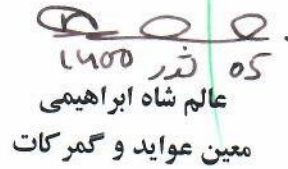 05 ثور 1400
عالم شاه ابراهیمی
معین عواید و گمرکات